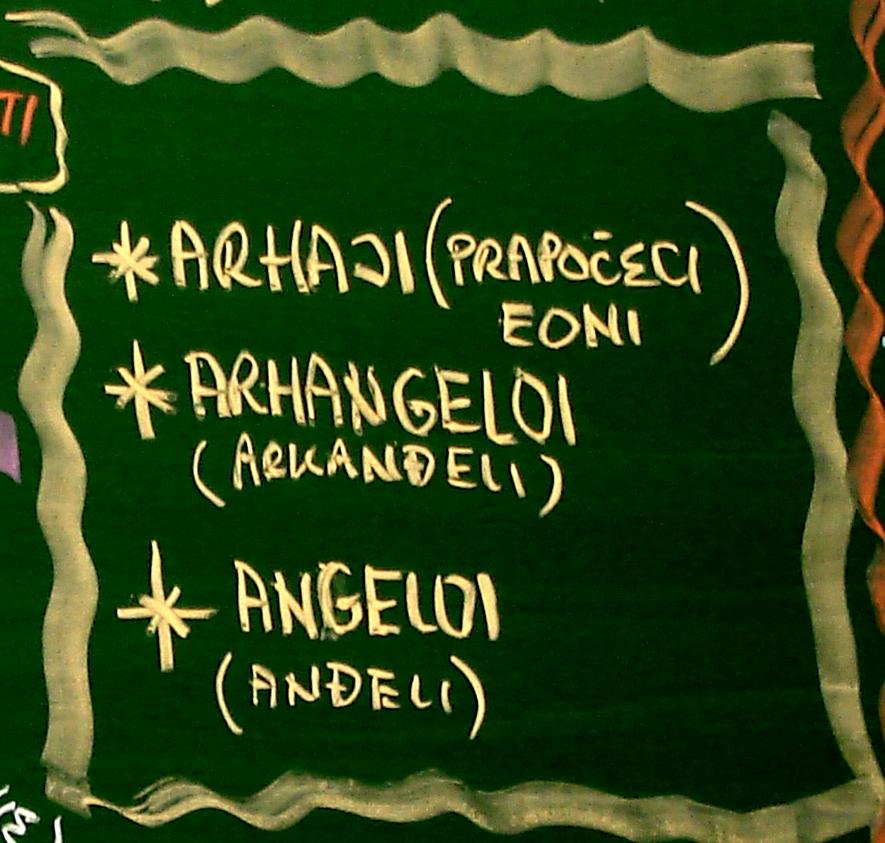 TI
* ARHAJI (PRAPOČECI
EONI)
* ARHANGELOI
(ARKANĐELI)
* ANGELOI
(ANĐELI)